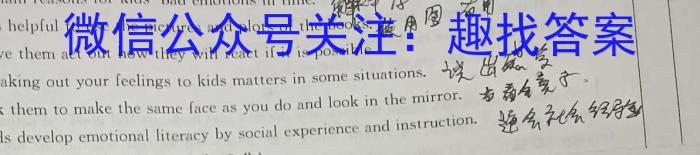 reasons for kids' bad emotions in time.
s helpful the pictures and plots of the books. 使用图
微信公众号关注：趣找答案
ve them act out how they will react if it is possible.
aking out your feelings to kids matters in some situations. 说出感受
k them to make the same face as you do and look in the mirror.
ls develop emotional literacy by social experience and instruction. 社会经验